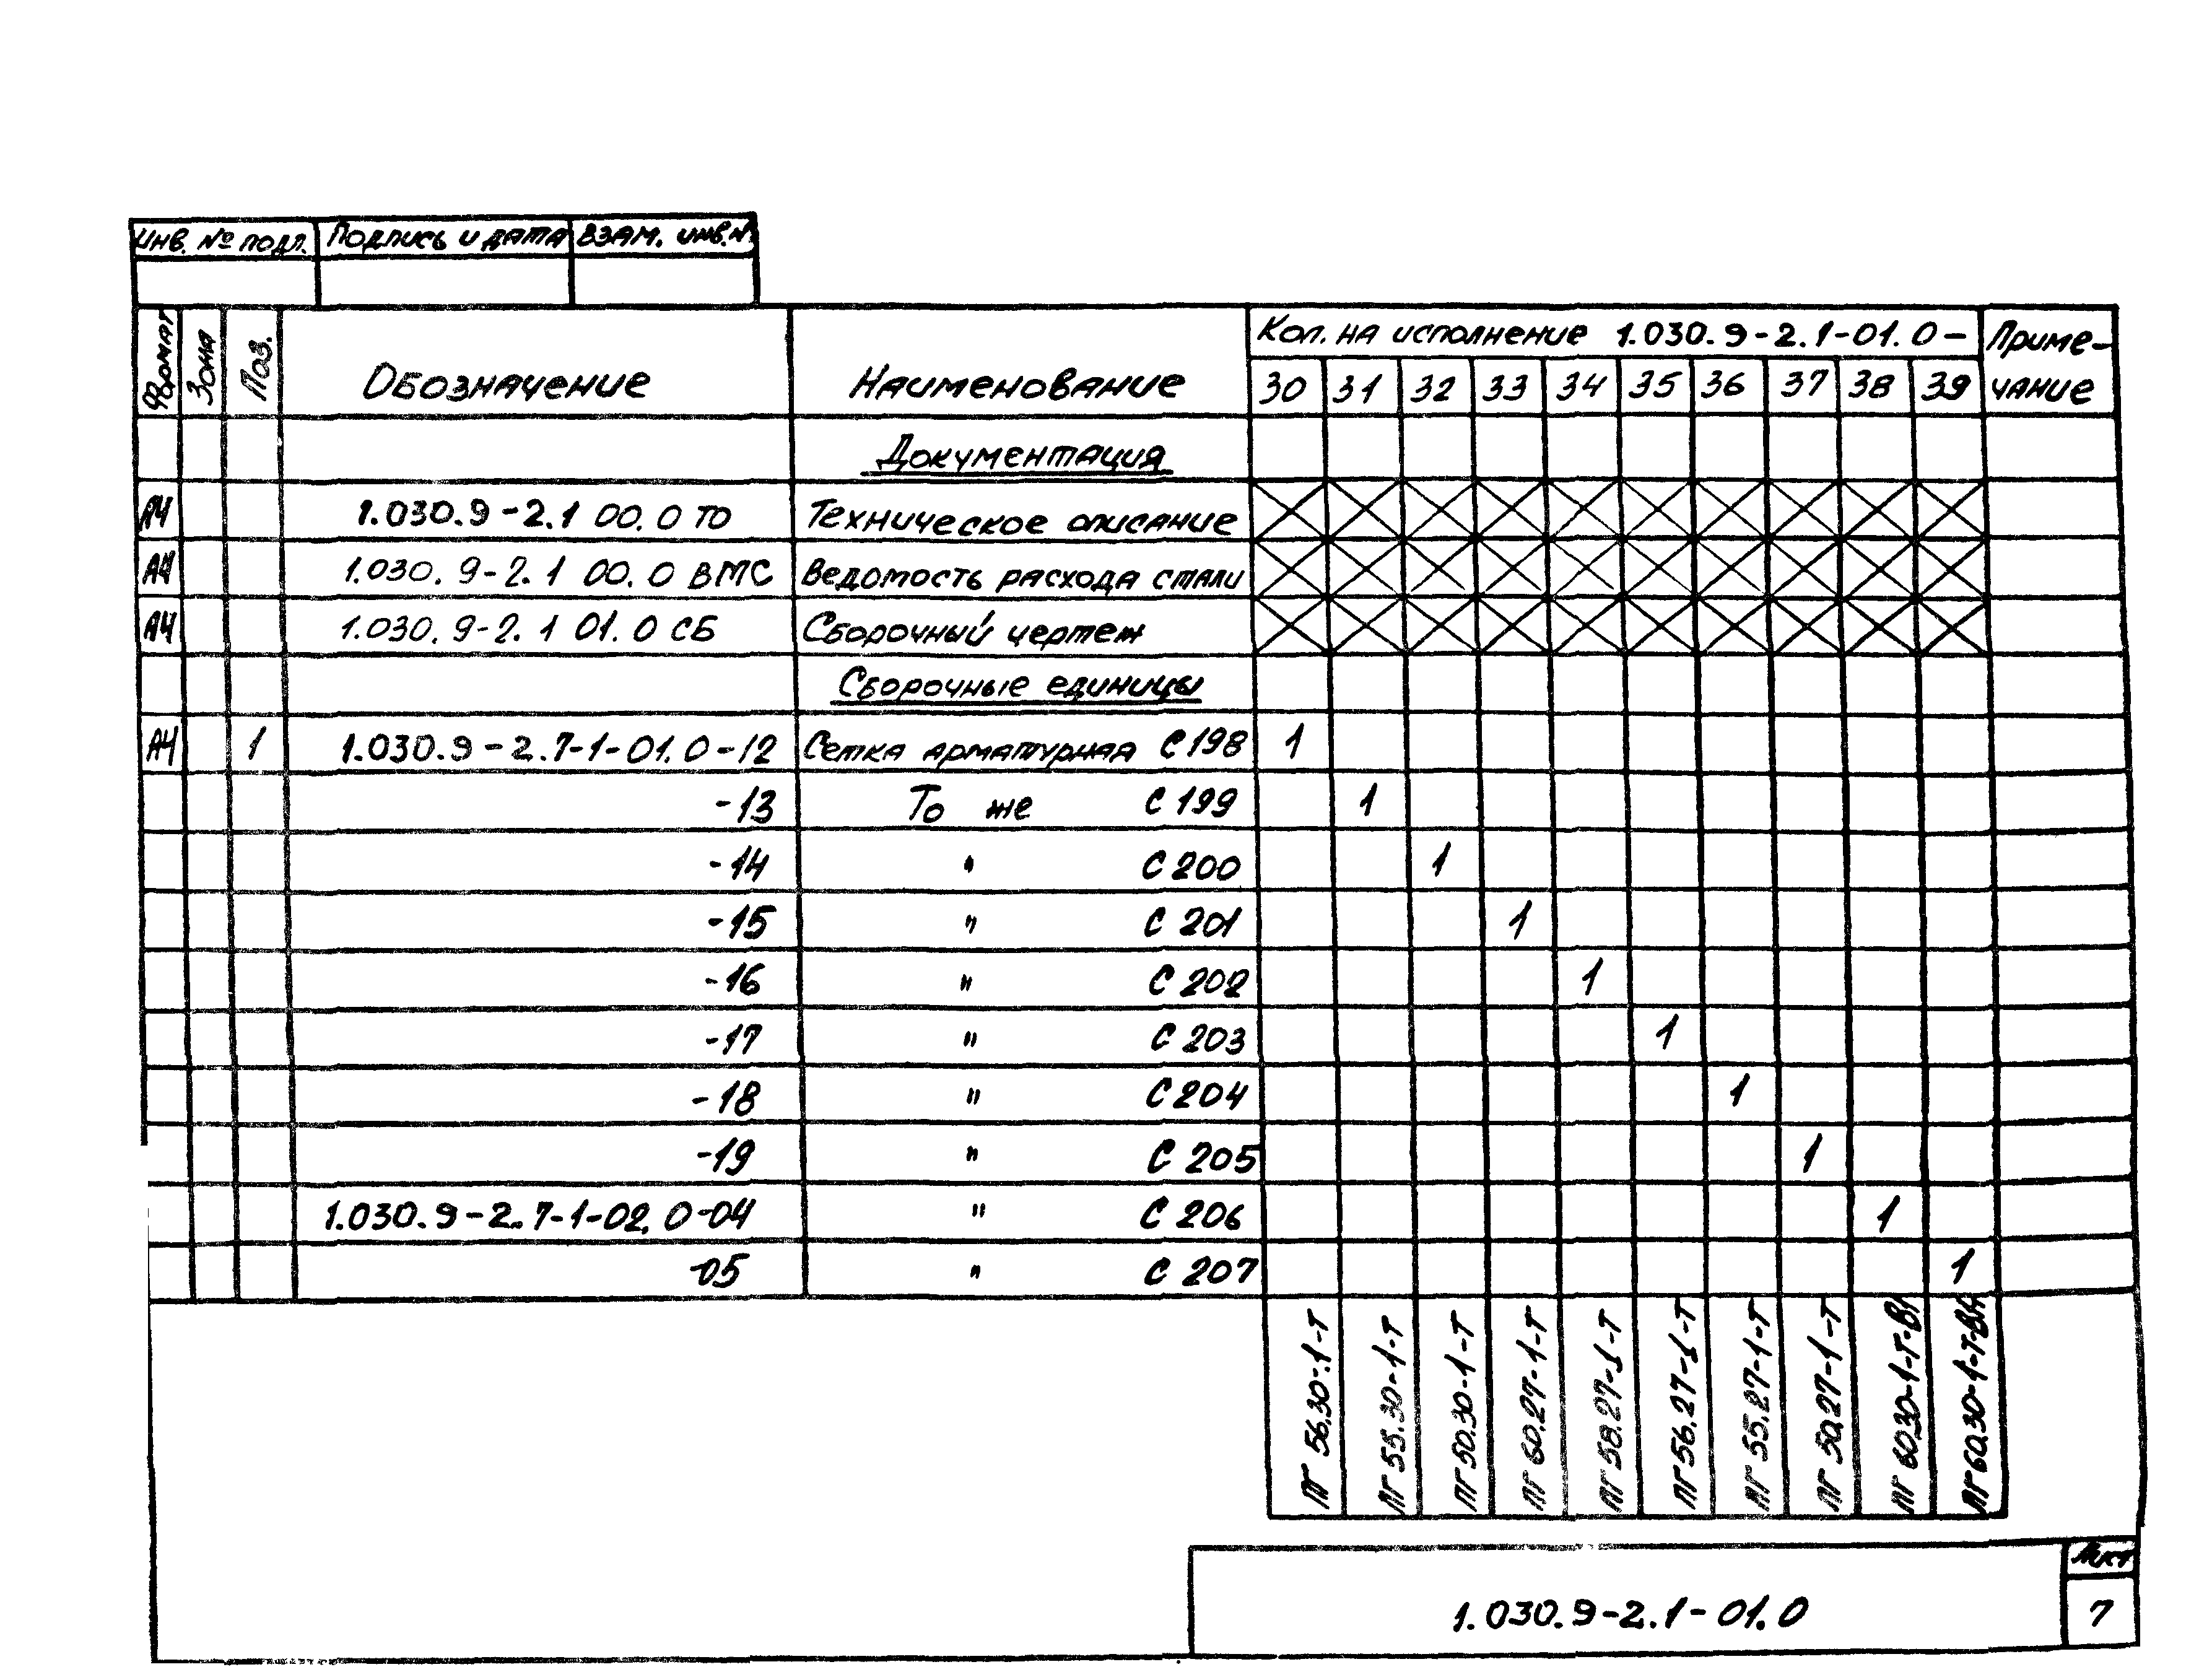 Инв. № подл. Подпись и дата Взам. инв. №
Формат Зона Поз. Обозначение Наименование Кол. на исполнение 1.030.9-2.1-01.0- Приме-
30 31 32 33 34 35 36 37 38 39 чание
Документация
А4 1.030.9-2.1 00.0 ТО Техническое описание
А4 1.030.9-2.1 00.0 ВМС Ведомость расхода стали
А4 1.030.9-2.1 01.0 СБ Сборочный чертеж
Сборочные единицы
А4 1 1.030.9-2.7-1-01.0-12 Сетка арматурная С 198 1
-13 То же С 199 1
-14 " С 200 1
-15 " С 201 1
-16 " С 202 1
-17 " С 203 1
-18 " С 204 1
-19 " С 205 1
1.030.9-2.7-1-02.0-04 " С 206 1
-05 " С 207 1
ПГ 56.30-1-Т
ПГ 55.30-1-Т
ПГ 50.30-1-Т
ПГ 60.27-1-Т
ПГ 58.27-1-Т
ПГ 56.27-1-Т
ПГ 55.27-1-Т
ПГ 50.27-1-Т
ПГ 60.30-1-Т-
ПГ 60.30-1-Т-
Лист
1.030.9-2.1-01.0 7